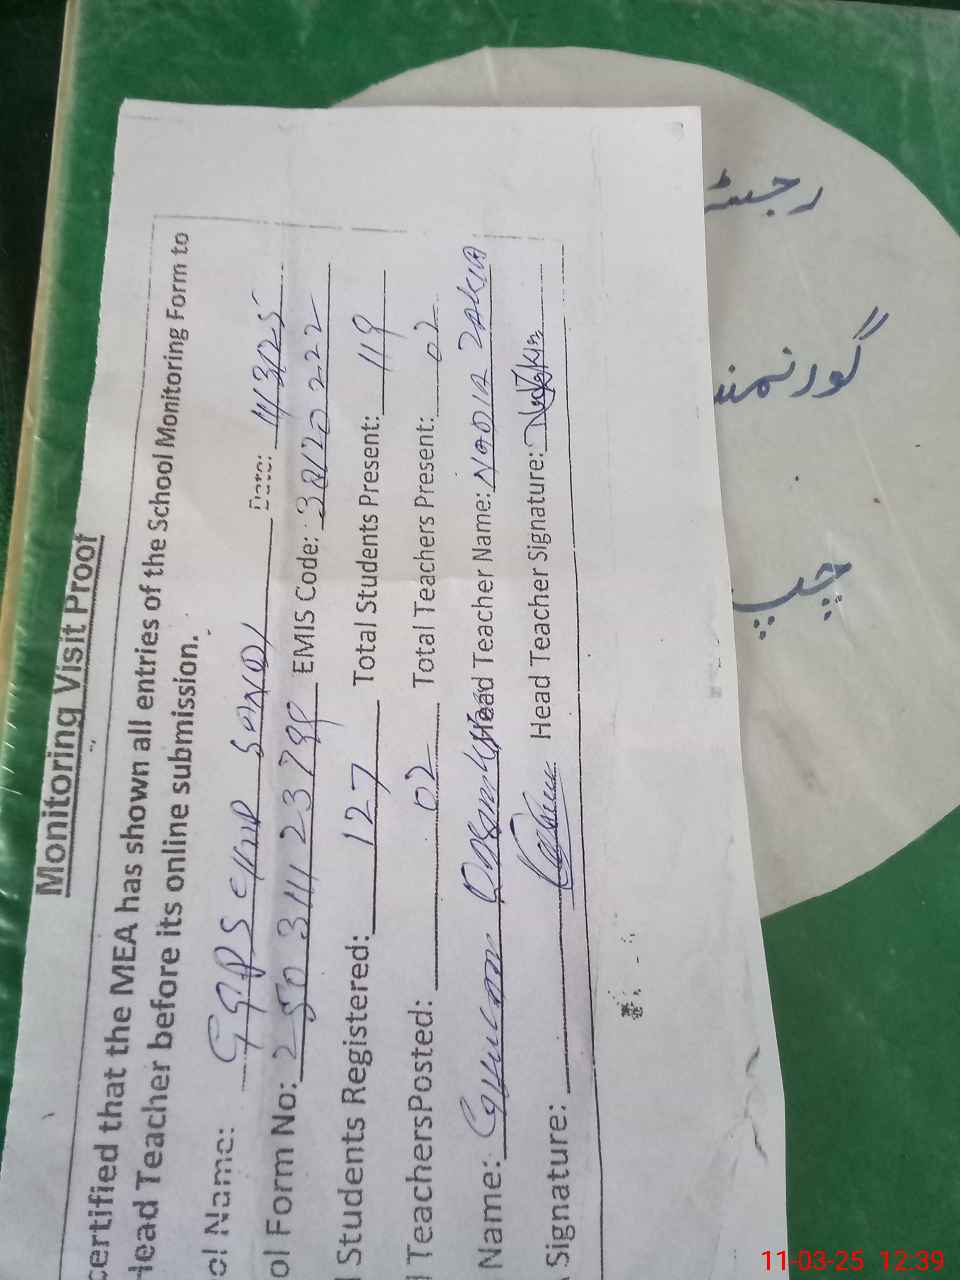 Monitoring Visit Proof
certified that the MEA has shown all entries of the School Monitoring Form to
Head Teacher before its online submission.
ol Name: GGPS CHAP SANDI Date: 11/3/25
ol Form No: 25031112379 EMIS Code: 38120222
l Students Registered: 127 Total Students Present: 119
l TeachersPosted: 02 Total Teachers Present: 02
Name: Head Teacher Name: NADIA ZAKIA
Signature: Head Teacher Signature:
رجسٹ
گورنمن
چپ
11-03-25 12:39